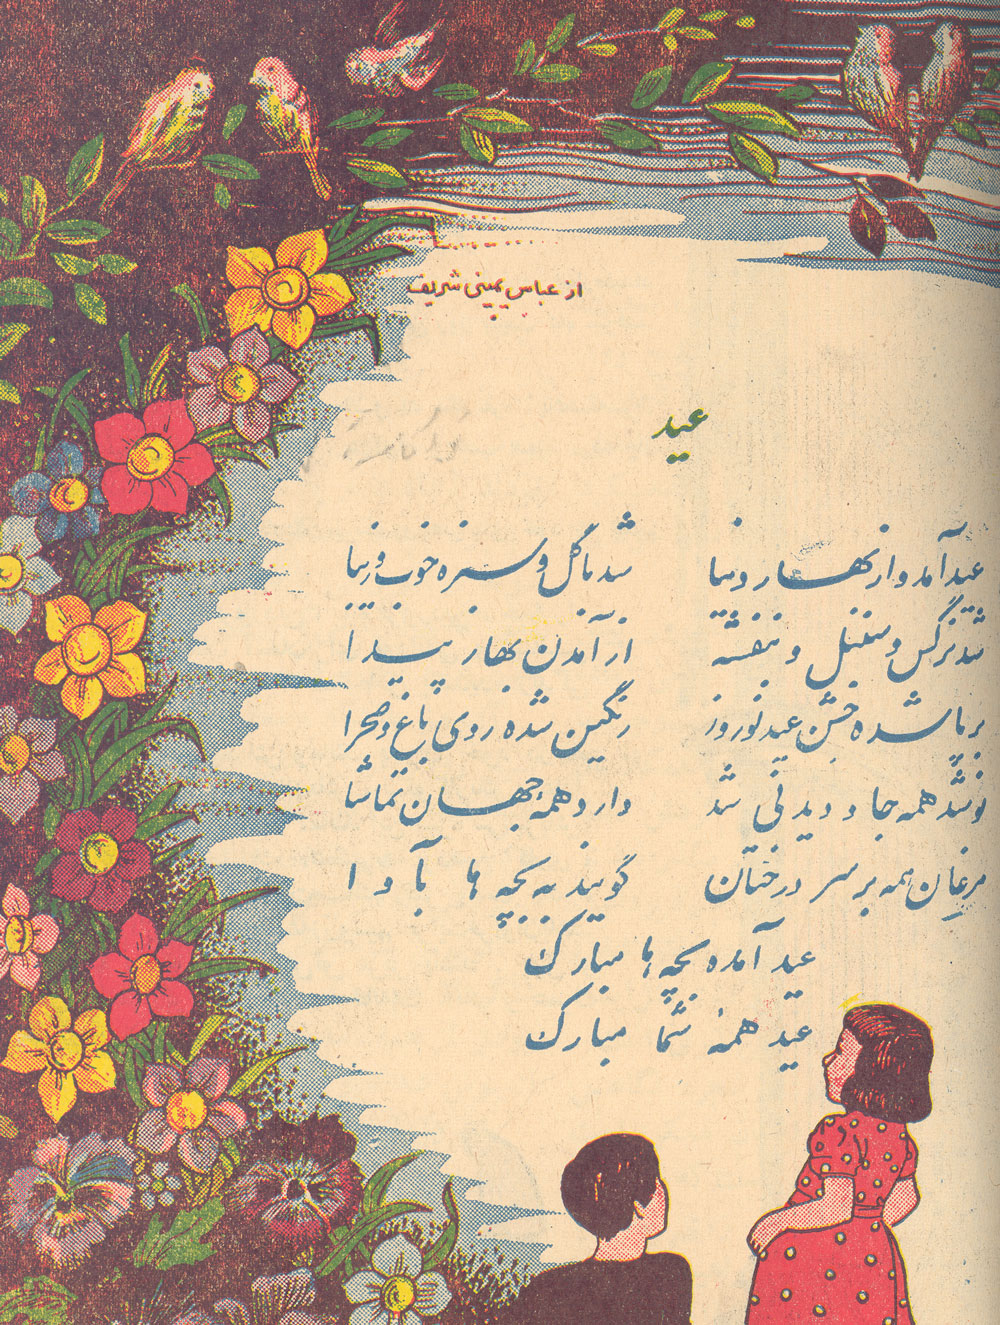 از عباس یمینی شریف
عید
عید آمد و از بهار دنیا شد با گل و سبزه خوب و زیبا
شد نرگس و سنبل و بنفشه از آمدن بهار پیدا
بر پا شده جشن عید نوروز رنگین شده روی باغ و صحرا
نو شد همه جا و دیدنی شد دارد همهٔ جهان تماشا
مرغان همه بر سر درختان گویند به بچه ها با آوا
عید آمده بچه ها مبارک
عید همهٔ شما مبارک